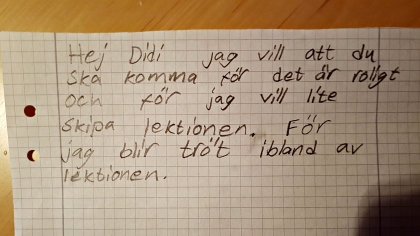 Hej Didi jag vill att du
ska komma för det är roligt
och för jag vill lite
skipa lektionen. För
jag blir tröt ibland av
lektionen.